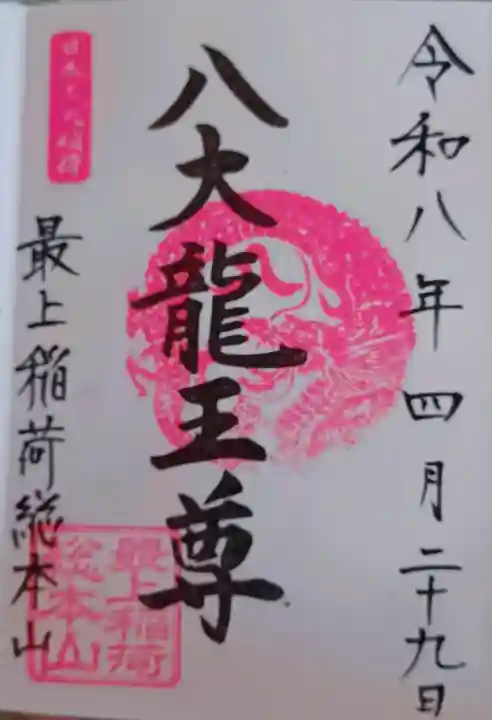 令和八年四月二十九日
八大龍王尊
日本三大稲荷
最上稲荷総本山
最上稲荷
総本山